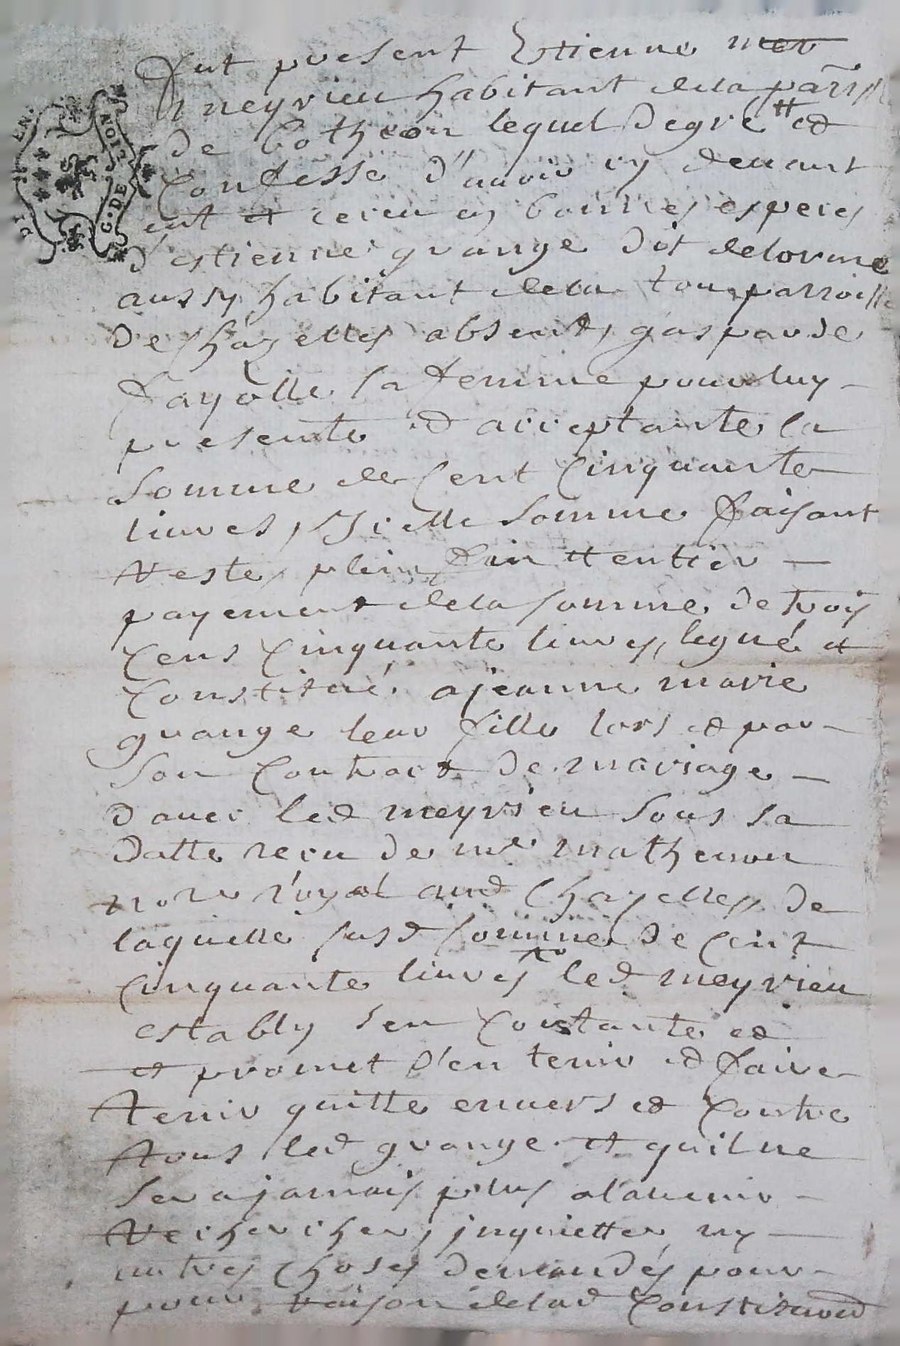 fut present Estienne mer
meyrieu habitant dela parr
de Botheon lequel de gre et
Confesse d'auoir cy deuant
eut et receu en bonnes especes
d'estienne grange dit delorme
aussy habitant dela tour parroisse
de Chazelles absent, gasparde
fayolle sa femme pour luy
presente et acceptante la
Somme de Cent Cinquante
liures, Icelle somme faisant
reste, plein et entier
payement dela somme de trois
Cens Cinquante liures, legué et
Constitué a jeanne marie
grange leur fille lors et par
Son Contract de mariage
d'auec led meyrieu sous sa
datte receu de me matheuon
nore royal aud Chazelles, de
laquelle susd somme de Cent
Cinquante liures led meyrieu
estably s'en Contante et
et promet l'en tenir et faire
tenir quitte enuers et Contre
tous led grange et quil ne
sera jamais plus alauenir
rechercher, jnquietter ny
autres choses demandés pour
pour raison delad Constituond
G. DE
LION